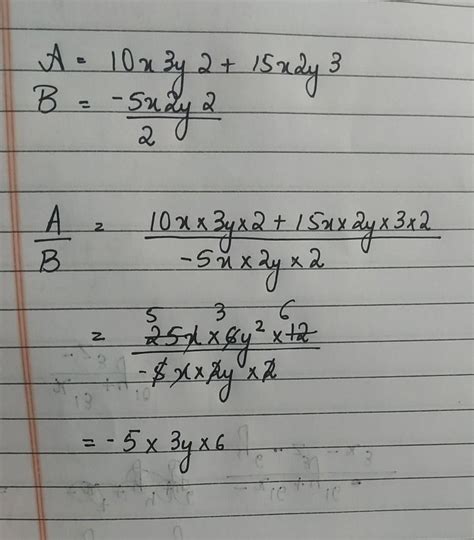 A = 10x3y2 + 15x2y3
B = -5x2y2
2
A/B = 10x×3y×2 + 15x×2y×3×2
-5x×2y×2
5 3 6
= 25x×6y²×12
-5x×2y×2
= -5×3y×6